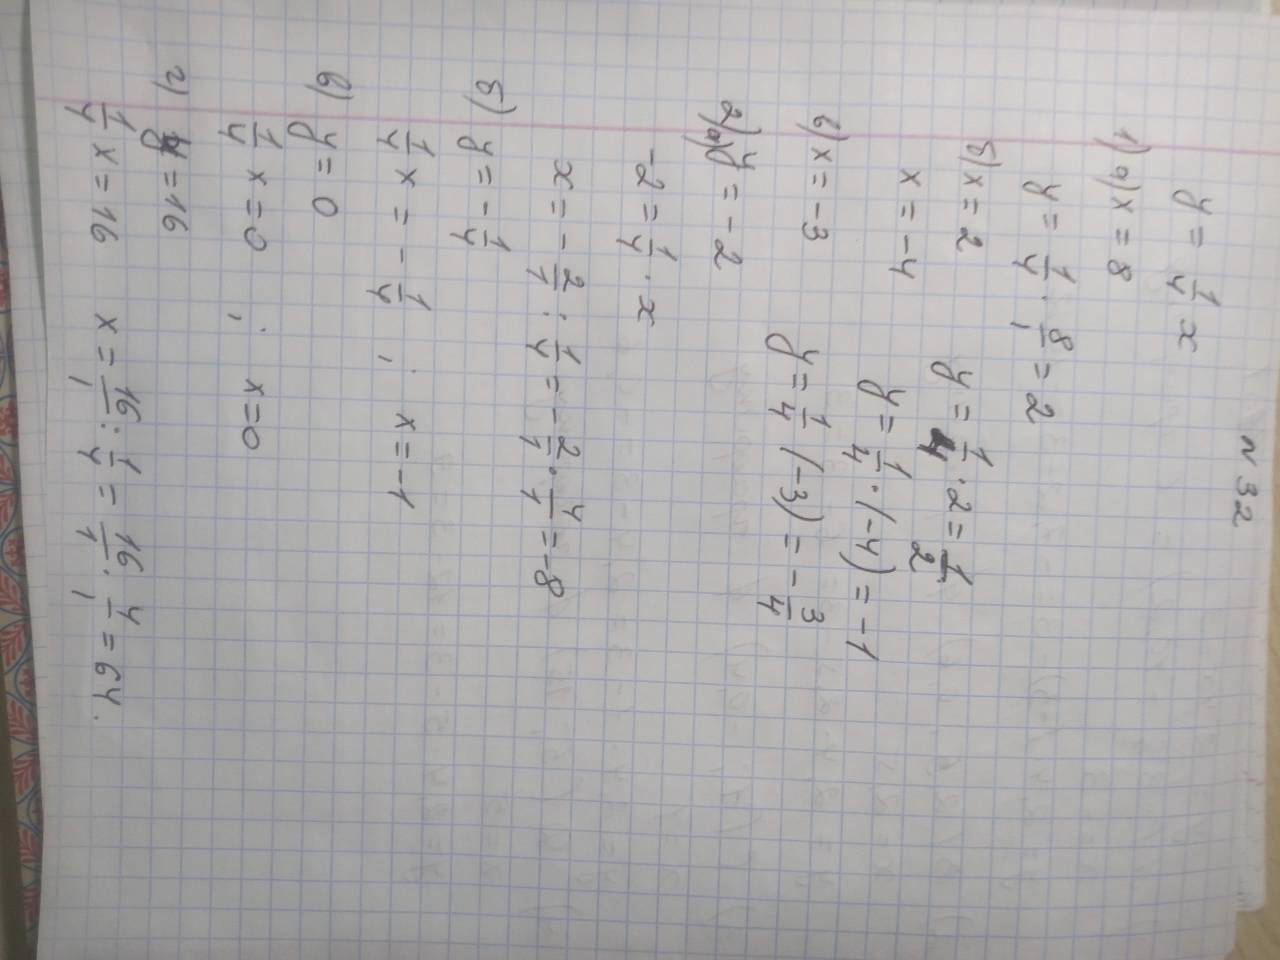 N 32
y = 1/4 x
1) а) x = 8
y = 1/4 · 8/1 = 2
б) x = 2 y = 1/4 · 2 = 1/2
x = -4 y = 1/4 · (-4) = -1
в) x = -3 y = 1/4 (-3) = - 3/4
2) а) y = -2
-2 = 1/4 · x
x = - 2/1 : 1/4 = - 2/1 · 4/1 = -8
б) y = - 1/4
1/4 x = - 1/4 ; x = -1
в) y = 0
1/4 x = 0 ; x = 0
г) y = 16
1/4 x = 16 x = 16/1 : 1/4 = 16/1 · 4/1 = 64.